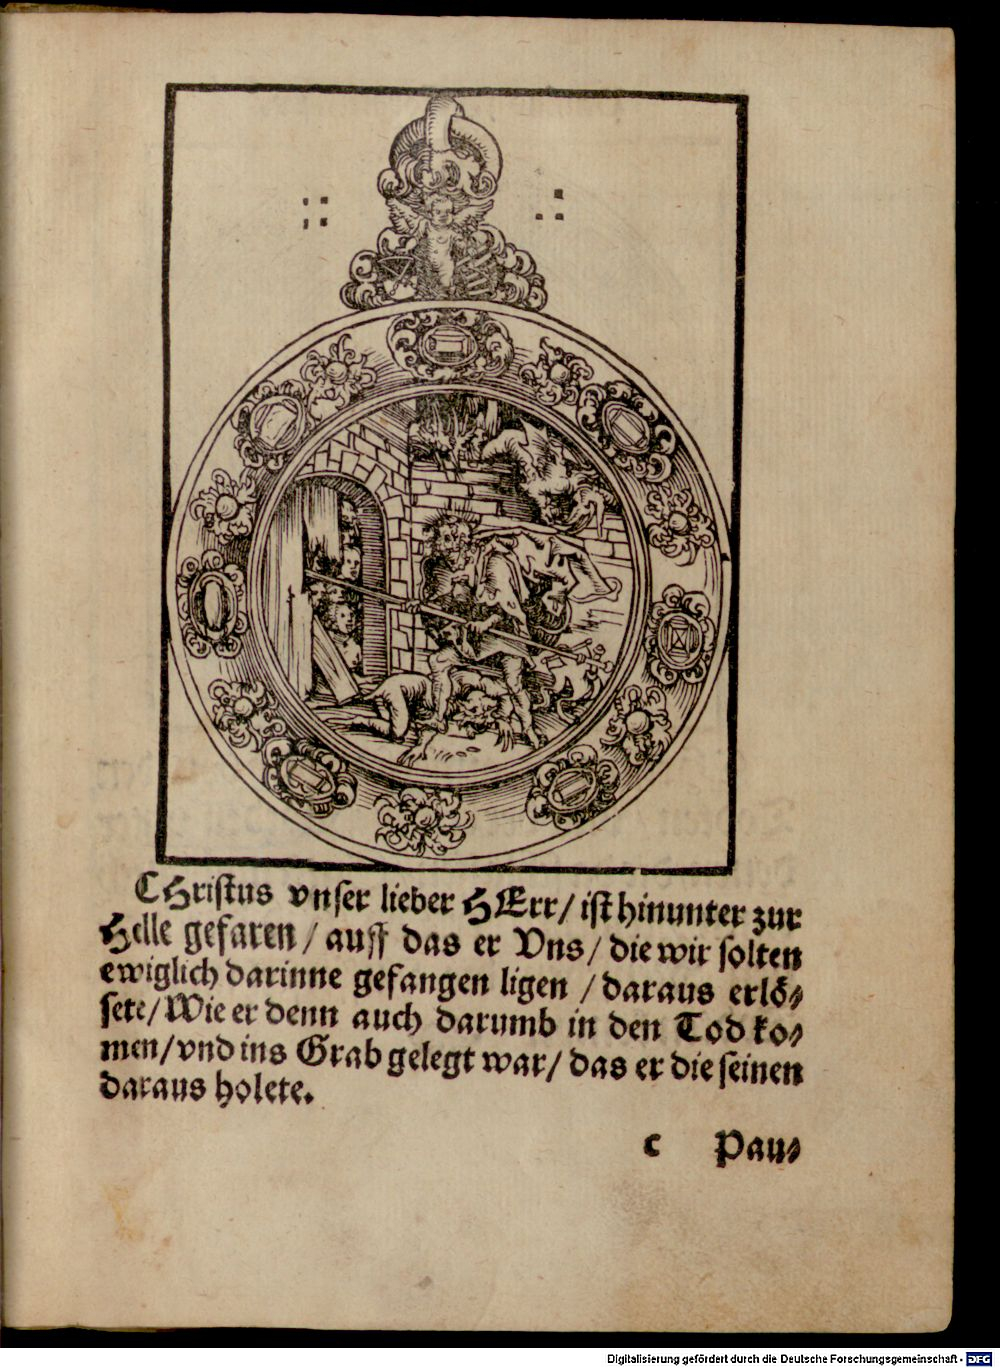 CHristus vnser lieber HErr/ ist hinunter zur
Helle gefaren/ auff das er Vns/ die wir solten
ewiglich darinne gefangen ligen/ daraus erlö⸗
sete/ Wie er denn auch darumb in den Tod ko⸗
men/ vnd ins Grab gelegt war/ das er die seinen
daraus holete.
c Pau⸗
Digitalisierung gefördert durch die Deutsche Forschungsgemeinschaft - DFG